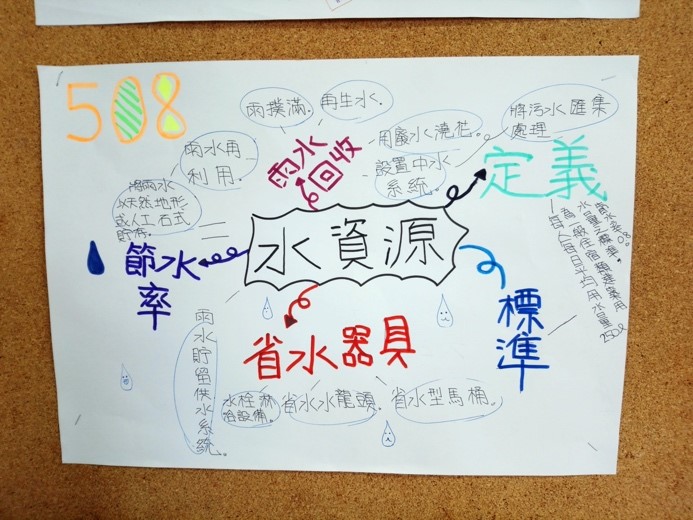 508
雨撲滿.
再生水.
用廢水澆花。
將污水匯集
處理
雨水再
利用.
雨水
回收
設置中水
系統.
定義
以天然地形
或人工石式
貯存.
水資源
節水
率
標
準
省水器具
雨水貯留供水系統。
水栓淋
浴設備。
省水水龍頭.
省水型馬桶.
為一般住宿類建築用
每人每日平均用水量
250ℓ